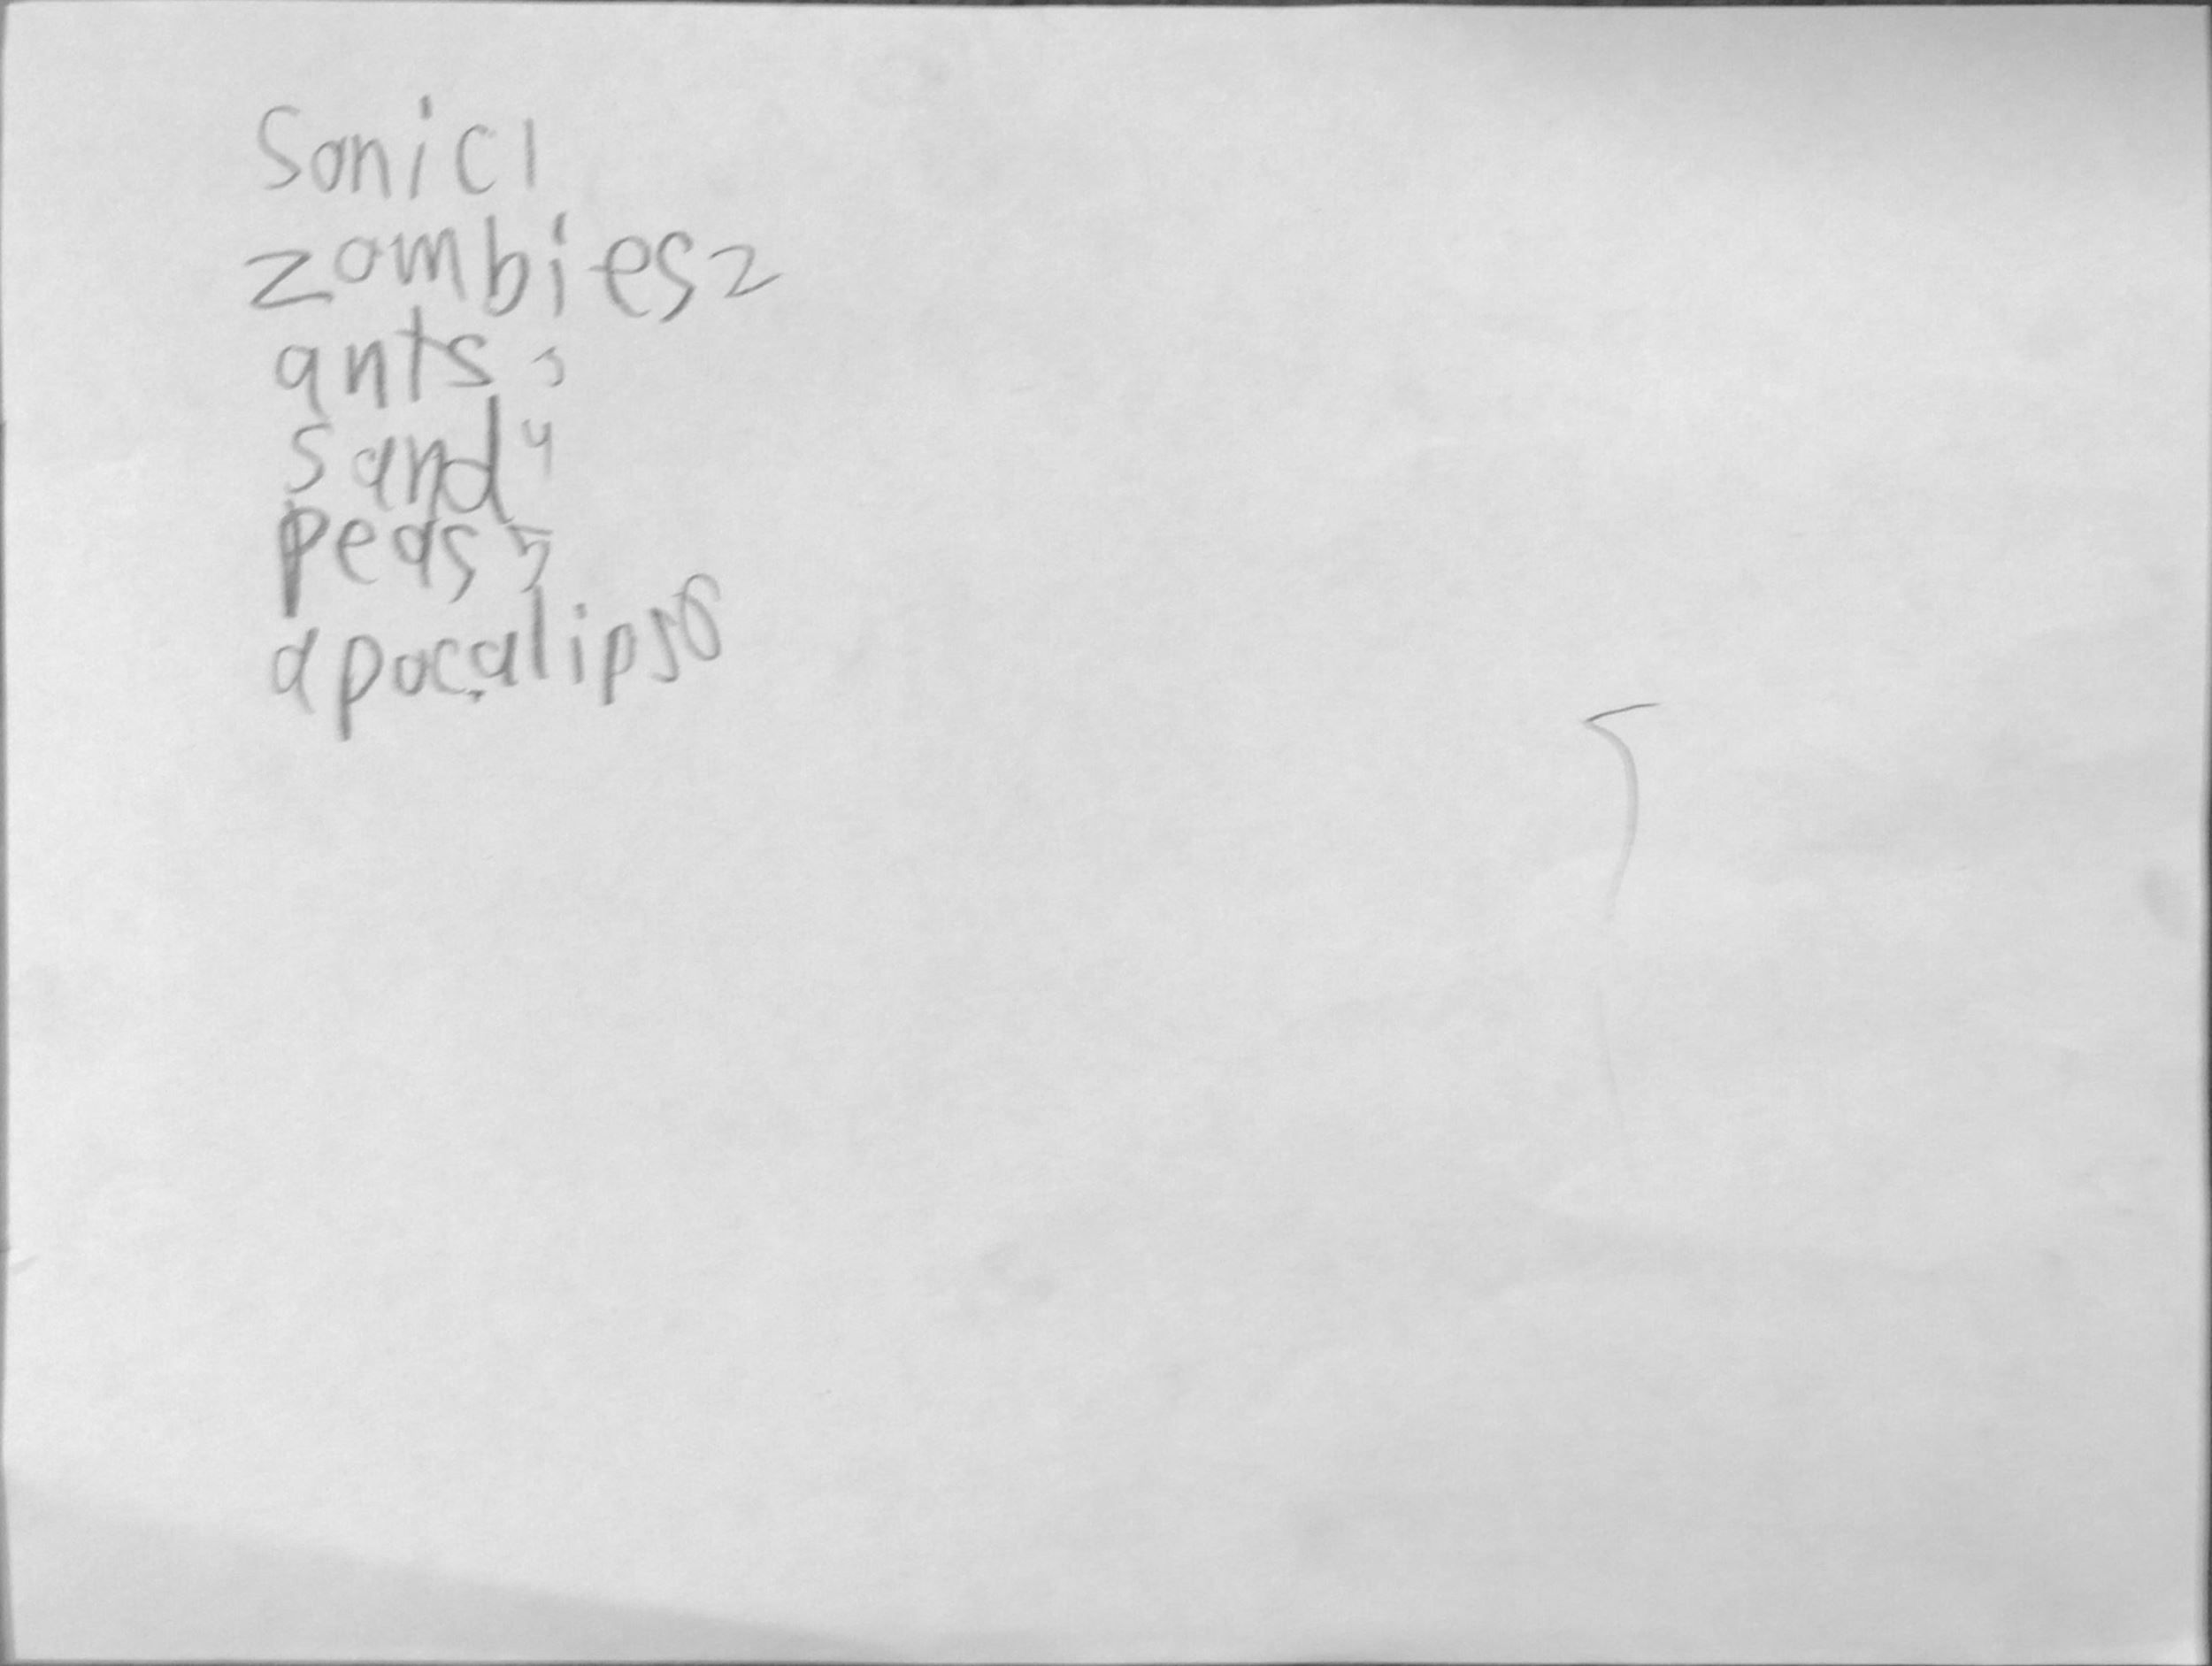 Sonic 1
zombies 2
ants 3
sand 4
peas 5
apocalips 6